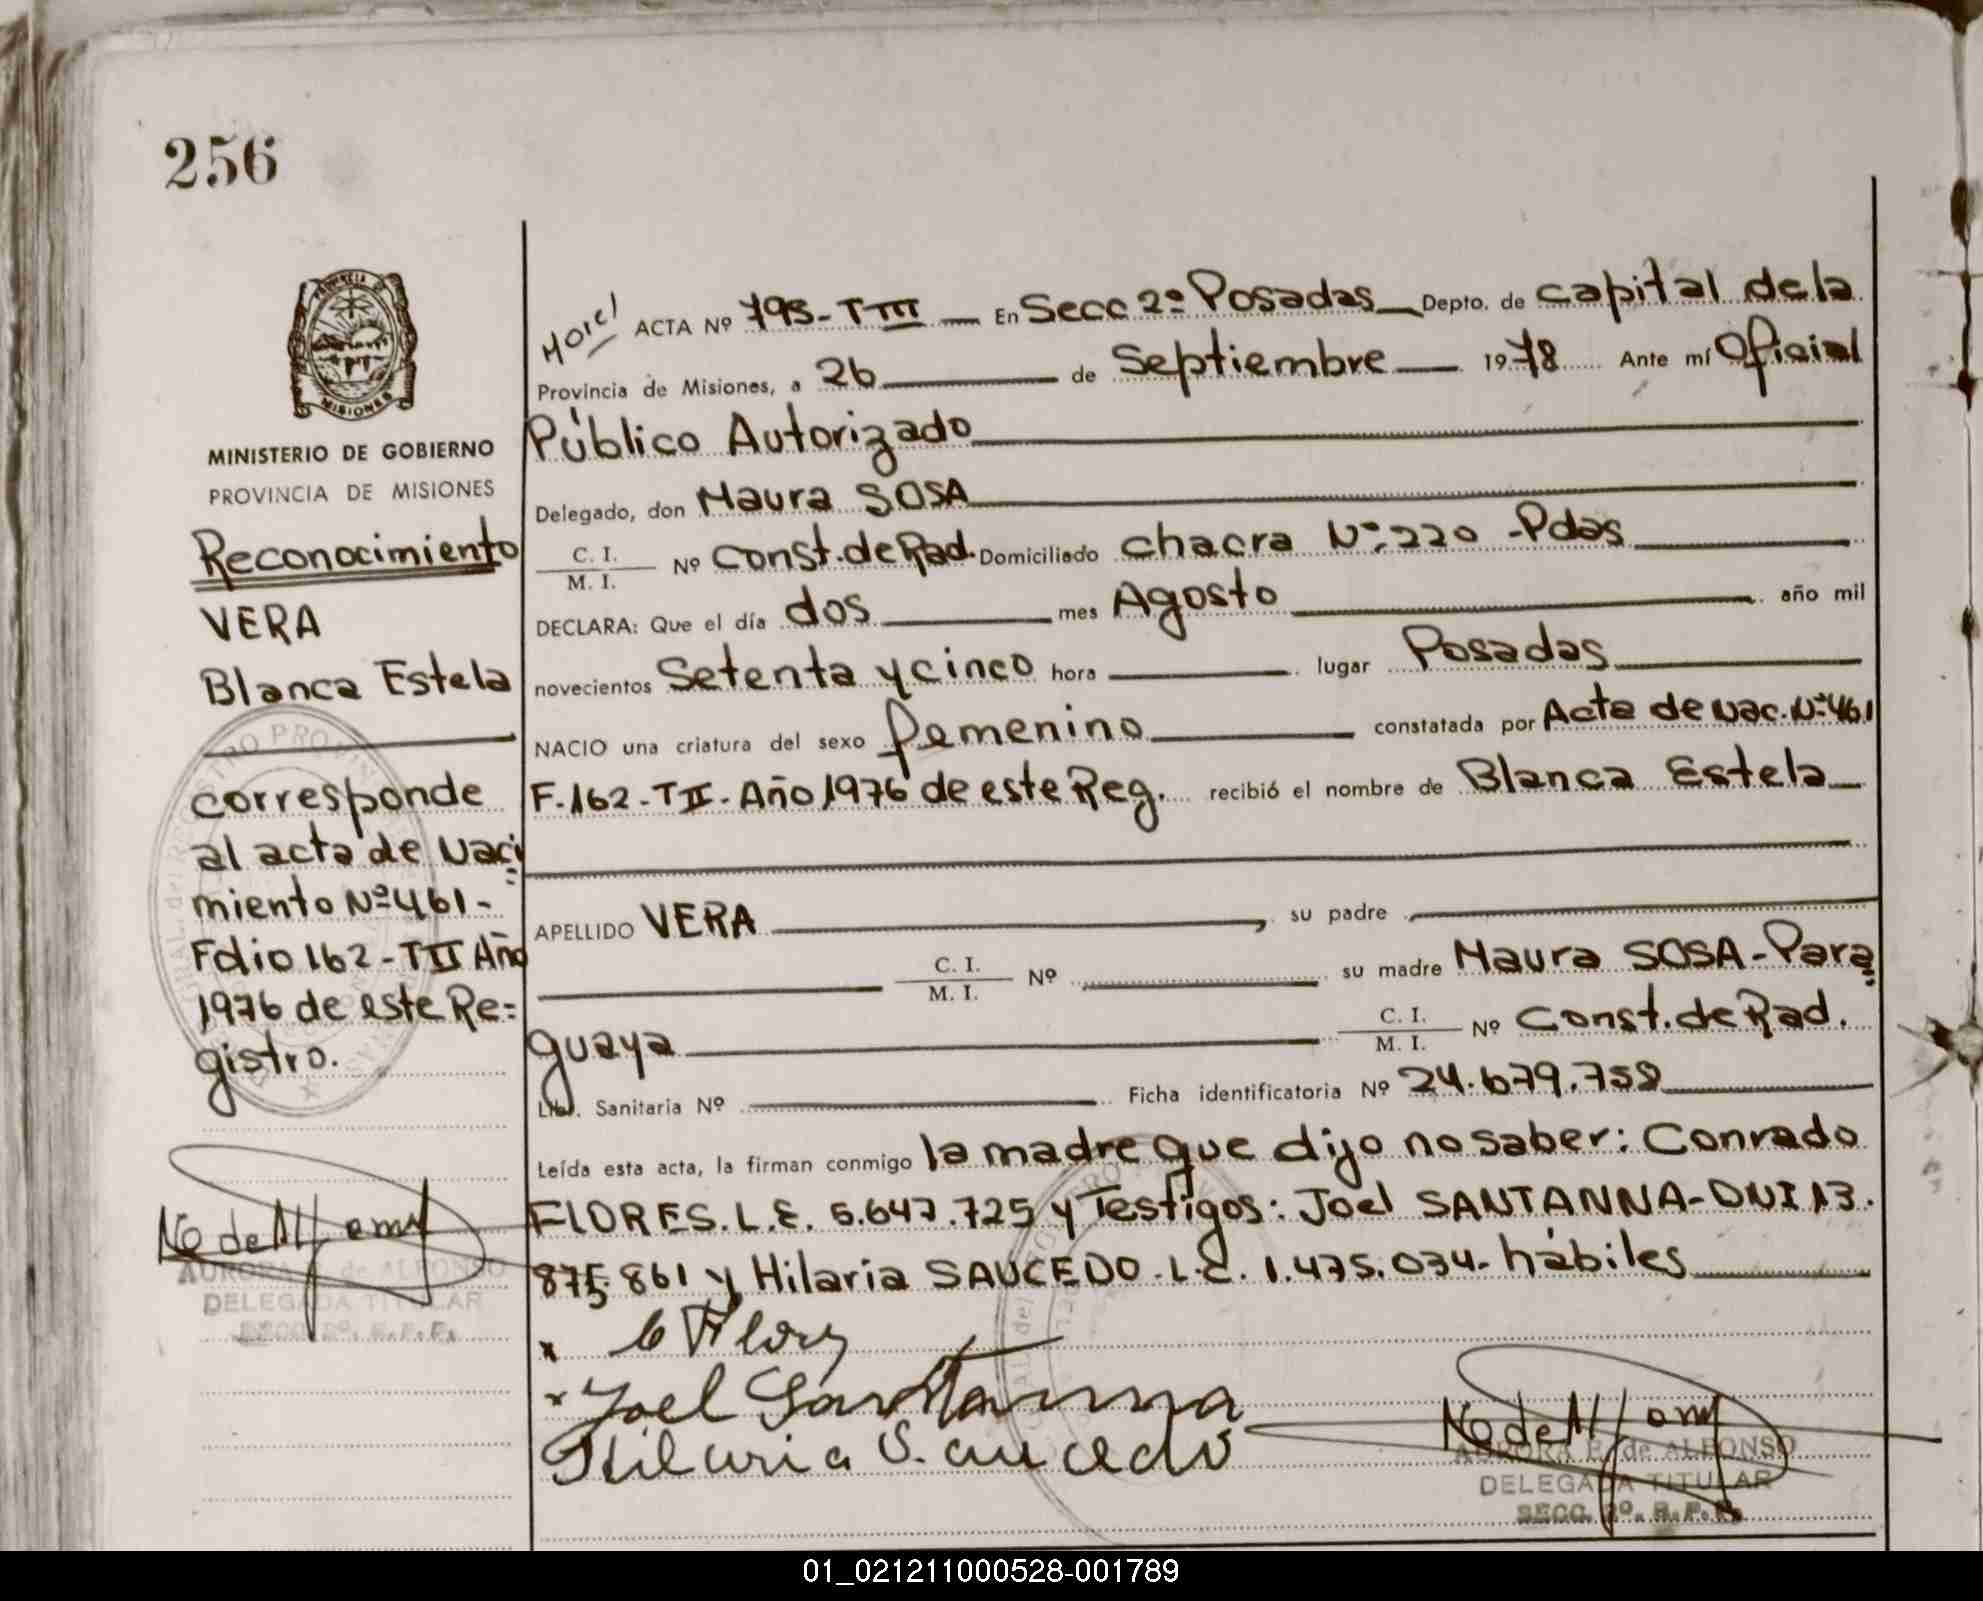 256
PROVINCIA DE
MISIONES
MINISTERIO DE GOBIERNO
PROVINCIA DE MISIONES
Reconocimiento
VERA
Blanca Estela
corresponde
al acta de Naci
miento Nº 461-
Folio 162-TII Año
1976 de este Re=
gistro.
AURORA de ALFONSO
DELEGADA TITULAR
SECC 2º.
ACTA Nº 795-TIII En Secc 2º Posadas Depto. de capital de la
Provincia de Misiones, a 26 de Septiembre 1978 Ante mí Oficial
Público Autorizado
Delegado, don Maura SOSA
C. I.
M. I. Nº Const. de Rad. Domiciliado chacra Nº 220 - Pdas
DECLARA: Que el día dos mes Agosto año mil
novecientos Setenta y cinco hora lugar Posadas
NACIO una criatura del sexo femenino constatada por Acta de Nac. Nº 461
F. 162-TII- Año 1976 de este Reg. recibió el nombre de Blanca Estela
APELLIDO VERA, su padre
C. I.
M. I. Nº su madre Maura SOSA-Para
guaya C. I.
M. I. Nº Const. de Rad.
Lib. Sanitaria Nº Ficha identificatoria Nº 24.679.758
Leída esta acta, la firman conmigo la madre que dijo no saber: Conrado
FLORES. L.E. 5.647.725 y Testigos: Joel SANTANNA-DNI 13.
875.861 y Hilaria SAUCEDO. L.E. 1.475.034- hábiles
x C Flores
x Joel Santanna
Hilaria Saucedo
AURORA de ALFONSO
DELEGADA TITULAR
SECC. 2º.
01_021211000528-001789